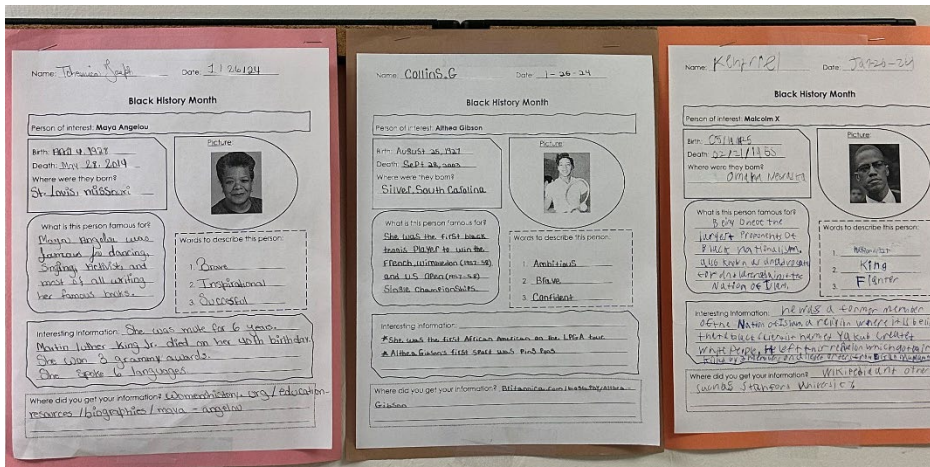 Name: Date: 1/26/24
Black History Month
Person of interest: Maya Angelou
Birth: April 4, 1928
Death: May 28, 2014
Where were they born?
St. Louis, missouri
Picture:
What is this person famous for?
Maya Angelou was
famous for dancing,
Singing, Activist, and
most of all writing
her famous books.
Words to describe this person:
1. Brave
2. Inspirational
3. Succesful
Interesting Information: She was mute for 6 years.
Martin luther King Jr. died on her 40th birthday
She won 3 grammy awards.
She spoke 6 languages.
Where did you get your information? womenshistory.org/education-
resources/biographies/maya-angelou
Name: Collins.G Date: 1-26-24
Black History Month
Person of interest: Althea Gibson
Birth: August 25, 1927
Death: Sept 28, 2003
Where were they born?
Silver, South Carolina
Picture:
What is this person famous for?
She was the first black
tennis Player to win the
French, Wimbledon (1957-58),
and U.S Open (1957-58)
Single Championships.
Words to describe this person:
1. Ambitious
2. Brave
3. Confident
Interesting Information:
*She was the first African American on the LPGA tour
*Althea Gibson's first sport was Ping Pong
Where did you get your information? Britannica.com/biography/Althea-
Gibson
Name: Date: Jan-26-24
Black History Month
Person of interest: Malcolm X
Birth:
Death: 02/21/1965
Where were they born?
Omaha Nebraska
Picture:
What is this person famous for?
Being one of the
largest Proponents of
Black nationalism,
also known as an advocate
for and a
Nation of Islam.
Words to describe this person:
1.
2. King
3. Fighter
Interesting Information: he was a former member
of the Nation of Islam a religion where it is
there black scientist named Yakub created
white people. He left their religion which got
Where did you get your information? Wikipedia and other
such as Stanford University